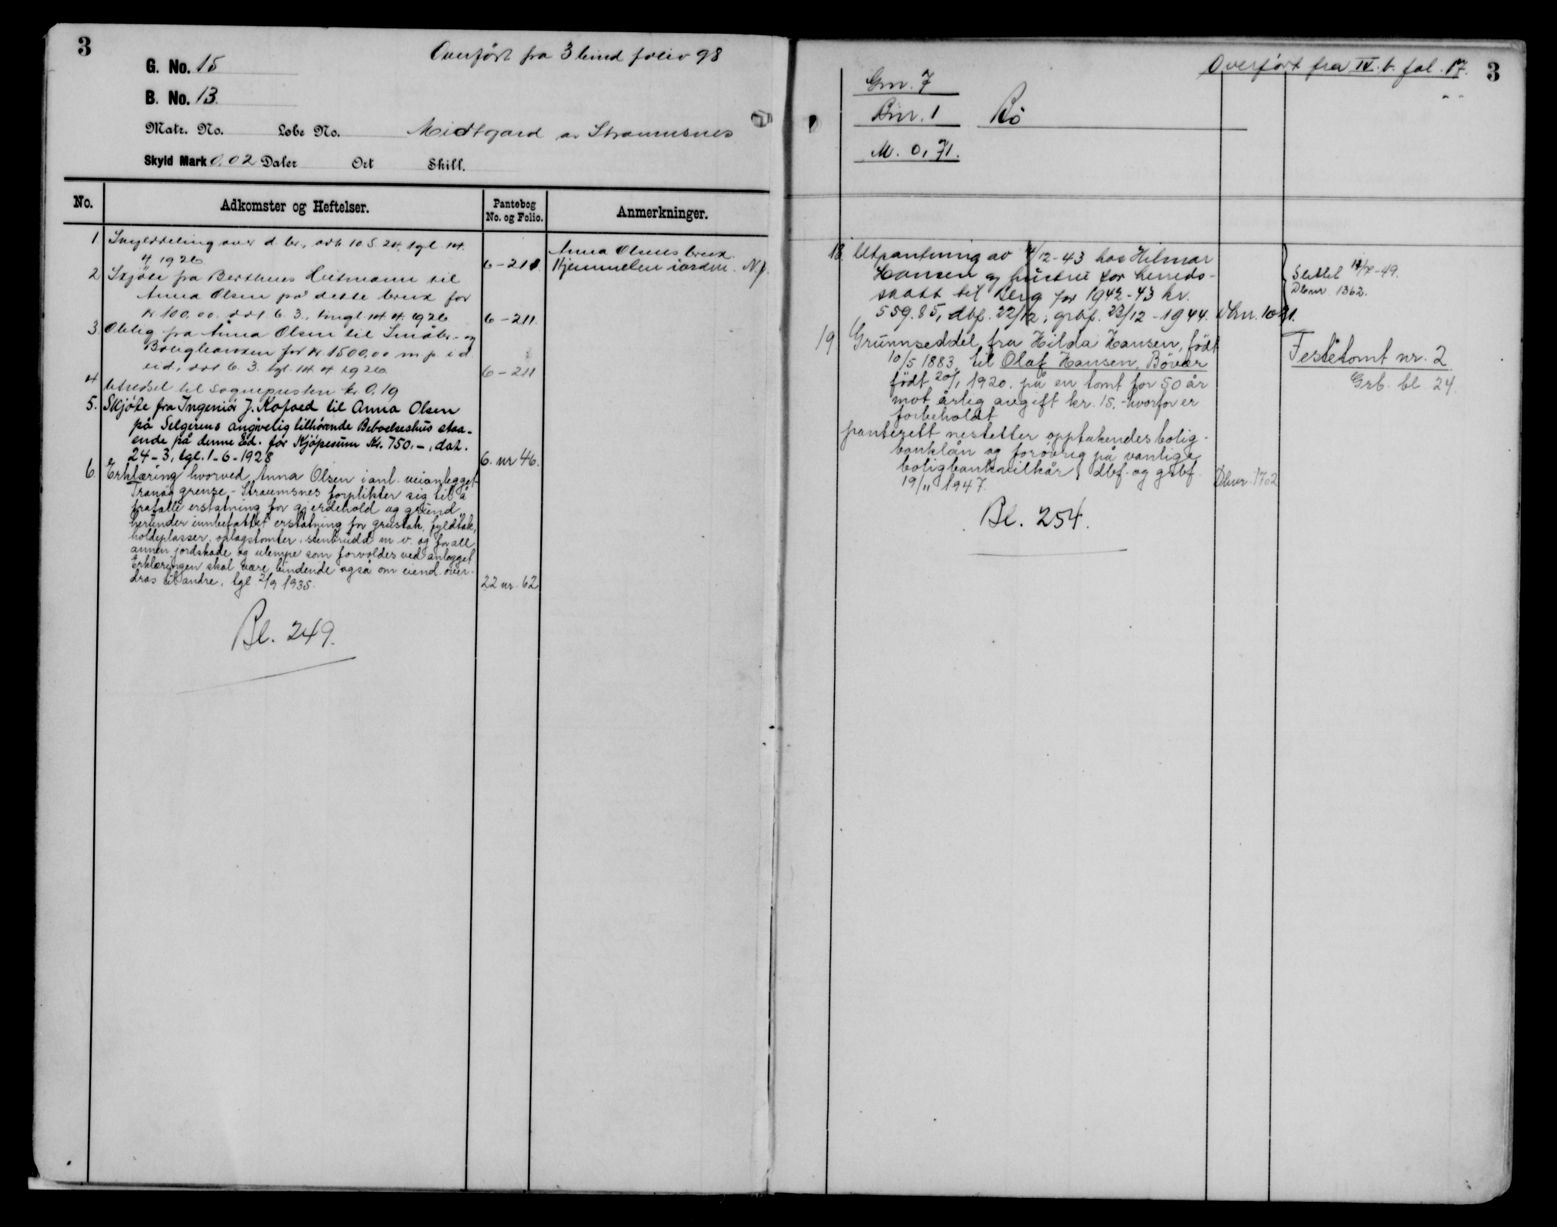 3
Overført fra 3 bind folio 98
G. No. 15
B. No. 13
Matr. No. Løbe No. Midtgaard av Straumsnes
Skyld Mark 0,02 Daler Ort Skill.
No. Adkomster og Heftelser. Pantebog No. og Folio. Anmerkninger.
1 Skylddeling over d. br., avh. 10.5.24, tgl. 14.
4 1926 6-211
Anna Olsens bruk
Hjemmelen i orden. N.J.
2 Skjøte fra Bertheus Heitmann til
Anna Olsen på dette bruk for
kr 100,00. dat 6. 3., tingl. 14. 4. 1926 6-211
3 Oblig. fra Anna Olsen til Småbr.- og
Boligbanken for kr 1500,00 m. p. i d.
eid., dat 6. 3. tgl. 14. 4 1926 6-211
4 Utredsel til Sognepresten kr 0.19
5. Skjøte fra Ingeniør J. Kofoed til Anna Olsen
på Selgerens angivelig tilhørende Beboelseshus staa-
ende på denne Eid. for Kjøpesum Kr. 750.-, dat.
24-3, tgl. 1-6-1928 6. nr 46.
6 Erklæring hvorved Anna Olsen i anl. veianlegget
Tranøs grense - Straumsnes forplikter sig til å
frafalle erstatning for gjerdehold og grund,
herunder innbefattet erstatning for grustak, fyldtak,
holdeplasser, oplagstomter, stenbrudd m. v. og for all
annen jordskade og ulempe som forvoldes ved anlegget
Erklæringen skal være bindende også om eiend. over-
dras til andre, tgl 2/9 1935. 22 nr. 62
Bl. 249.
Overført fra IV. b. fol. 17. 3
Gnr. 7
Bnr. 1 Bø
M. 0,71.
18 Utpantning av /12-43 hos Hilmar
Hansen og hustru for herreds-
skatt til Berg for 1942-43 kr.
559.85, dbf. 22/12, grbf. 23/12-1944. Dbnr. 1081.
Slettet 14/-49.
Dbnr 1362.
19 Grunnseddel fra Hilda Hansen, født
10/5 1883, til Olaf Hansen, Bøvær
født 20/1 1920. på en tomt for 50 år
mot årlig avgift kr. 15.- hvorfor er
forbeholdt
panterett nestetter opptakendes bolig-
banklån og forøvrig på vanlige
boligbankvilkår, dbf. og grbf.
19/11 1947 Dbnr. 1702
Festetomt nr. 2
Grb. bl 24
Bl. 254.